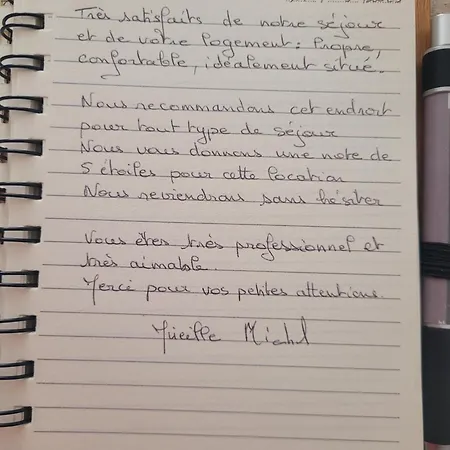 Très satisfaits de notre séjour
et de votre logement : Propre,
confortable, idéalement situé.
Nous recommandons cet endroit
pour tout type de séjour
Nous vous donnons une note de
5 étoiles pour cette location
Nous reviendrons sans hésiter
Vous êtes très professionnel et
très aimable.
Merci pour vos petites attentions.
Michel